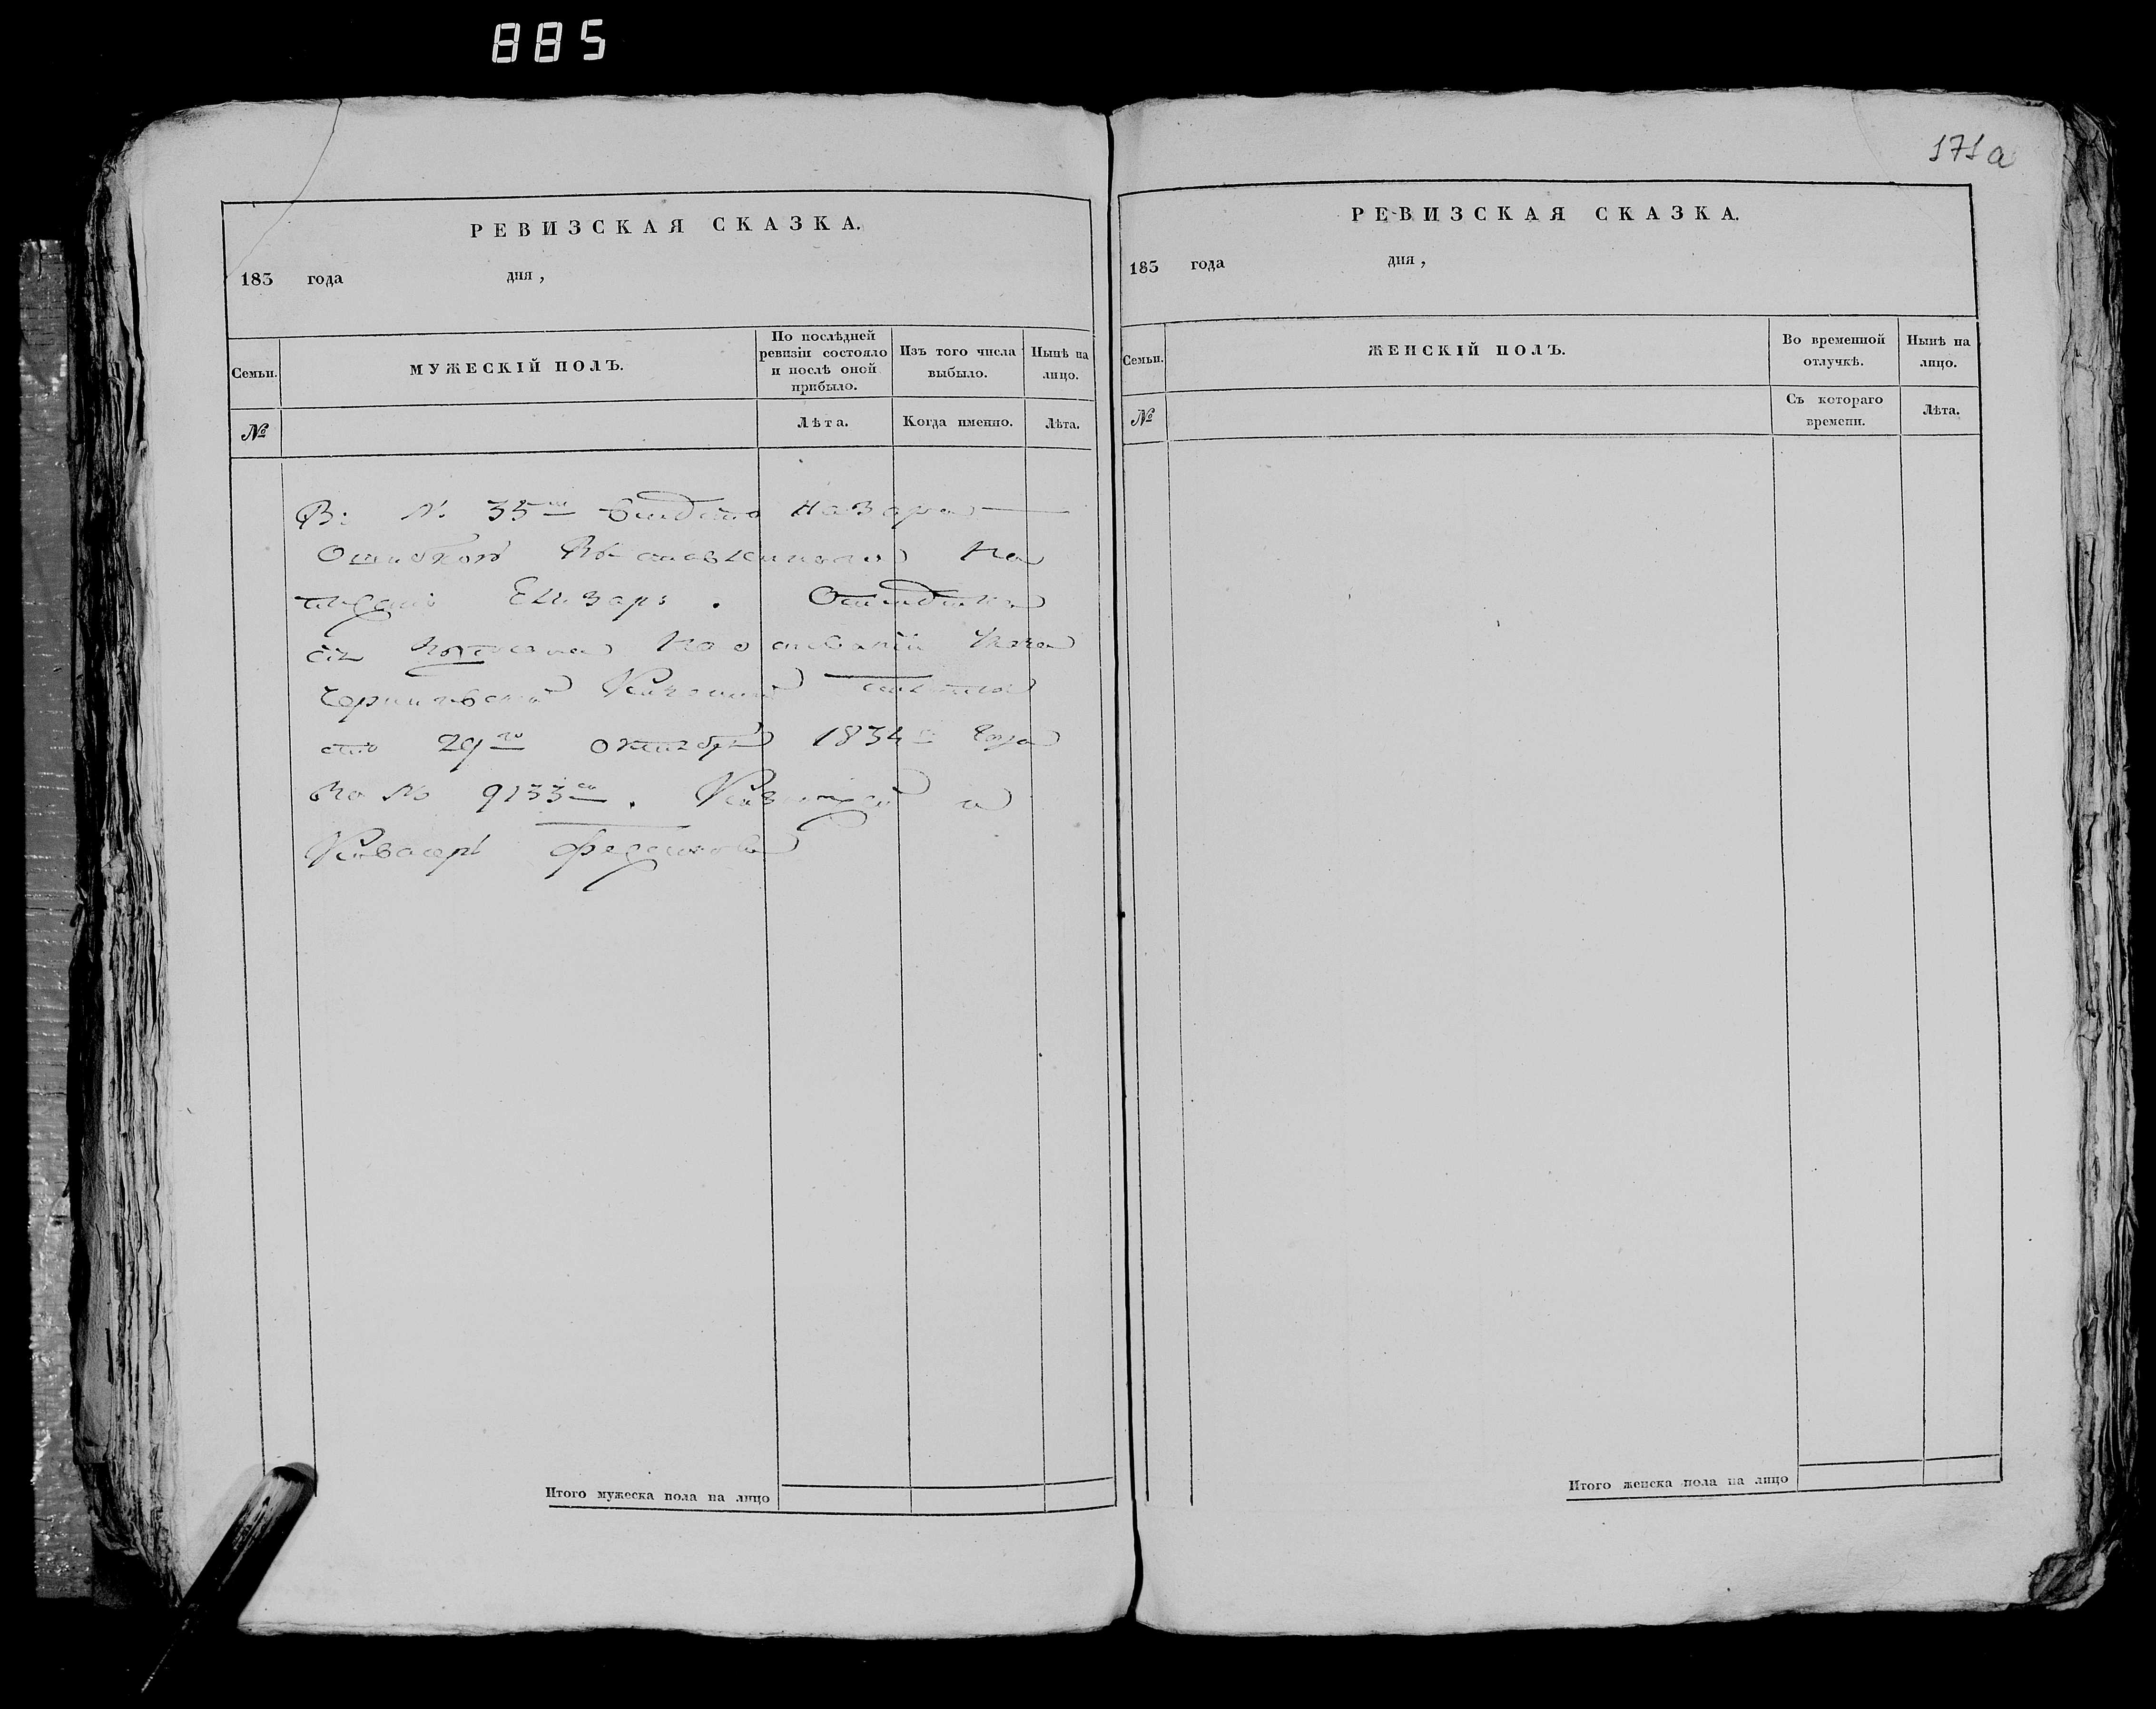 885
171а
РЕВИЗСКАЯ СКАЗКА.
183 года дня,
Семьи.
МУЖЕСКІЙ ПОЛЪ.
По послѣдней
ревизіи состояло
и послѣ оной
прибыло.
Изъ того числа
выбыло.
Нынѣ на
лицо.
№
Лѣта.
Когда именно.
Лѣта.
В: № 35 вмѣсто Назара
Ошибкою на
Елизаръ.
сія
Черниговской Казенной Палаты
отъ 29го октября 1834 года
за № 9133.
Итого мужеска пола на лицо
РЕВИЗСКАЯ СКАЗКА.
183 года дня,
Семьи.
ЖЕНСКІЙ ПОЛЪ.
Во временной
отлучкѣ.
Нынѣ на
лицо.
№
Съ котораго
времени.
Лѣта.
Итого женска пола на лицо